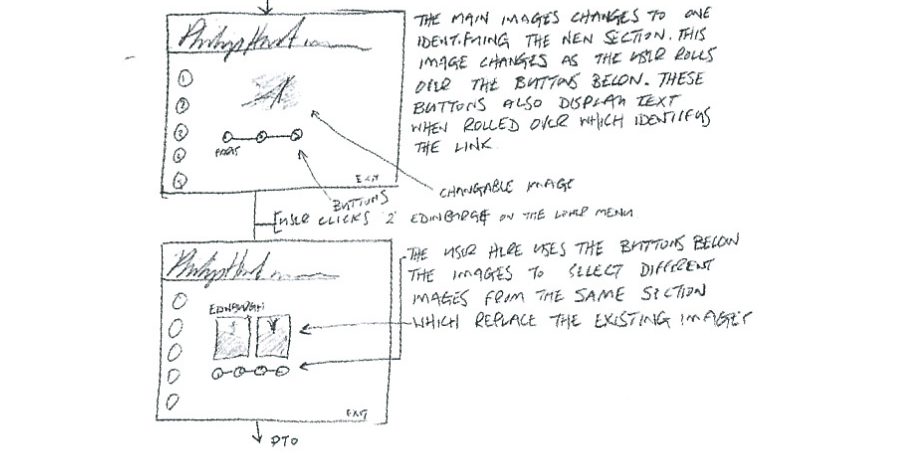 THE MAIN IMAGES CHANGES TO ONE
IDENTIFYING THE NEW SECTION. THIS
IMAGE CHANGES AS THE USER ROLLS
OVER THE BUTTONS BELOW. THESE
BUTTONS ALSO DISPLAY TEXT
WHEN ROLLED OVER WHICH IDENTIFYS
THE LINK.
1
2
3
PARIS
EXIT
CHANGABLE IMAGE
BUTTONS
USER CLICKS '2' EDINBURGH ON THE LOWER MENU
THE USER HERE USES THE BUTTONS BELOW
THE IMAGES TO SELECT DIFFERENT
IMAGES FROM THE SAME SECTION
WHICH REPLACE THE EXISTING IMAGES
EDINBURGH
EXIT
PTO